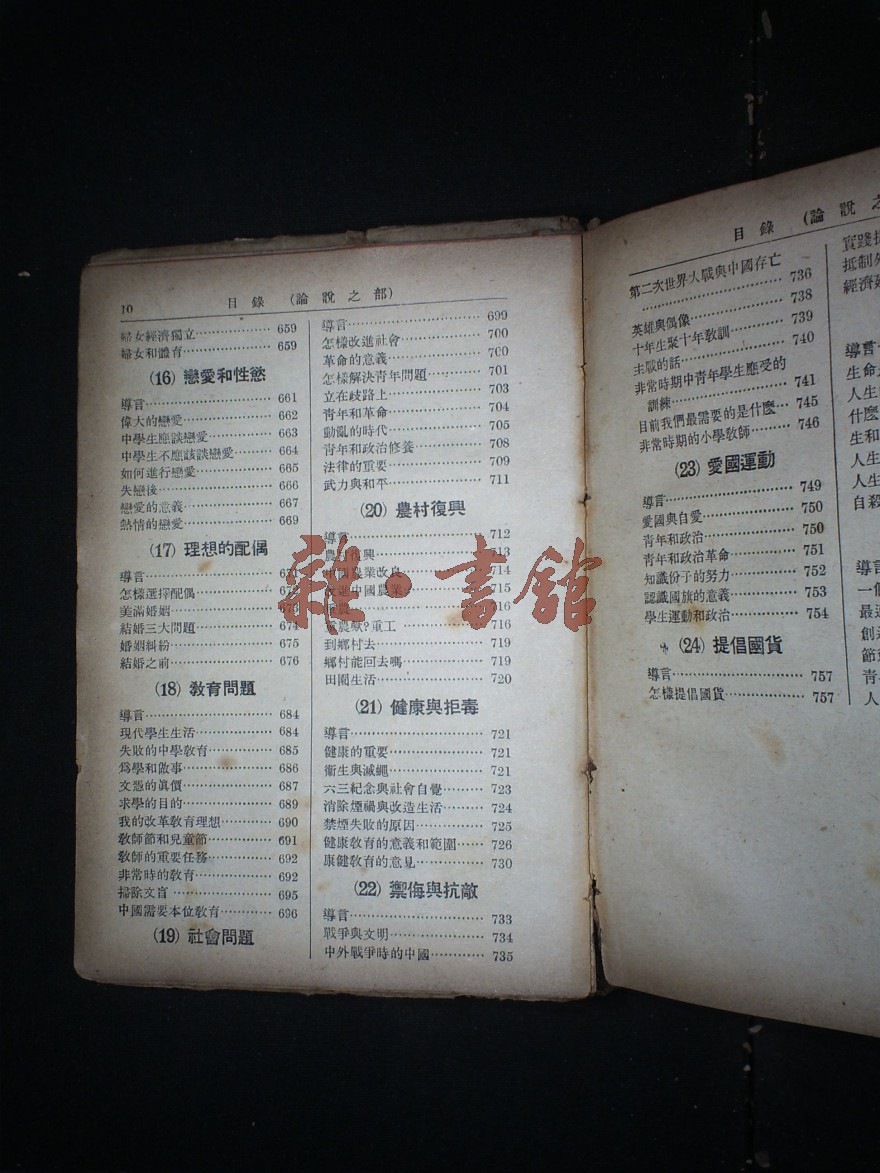 10 目錄 (論說之部)
婦女經濟獨立 659
婦女和體育 659
(16) 戀愛和性慾
導言 661
偉大的戀愛 662
中學生應談戀愛 663
中學生不應該談戀愛 664
如何進行戀愛 665
失戀後 666
戀愛的意義 667
熱情的戀愛 669
(17) 理想的配偶
導言
怎樣選擇配偶
美滿婚姻 673
結婚三大問題 674
婚姻糾紛 675
結婚之前 676
(18) 教育問題
導言 684
現代學生生活 684
失敗的中學教育 685
爲學和做事 686
文憑的眞價 687
求學的目的 689
我的改革教育理想 690
教師節和兒童節 691
教師的重要任務 692
非常時的教育 692
掃除文盲 695
中國需要本位教育 696
(19) 社會問題
導言 699
怎樣改進社會 700
革命的意義 700
怎樣解決青年問題 701
立在歧路上 703
青年和革命 704
動亂的時代 705
青年和政治修養 708
法律的重要 709
武力與和平 711
(20) 農村復興
導言 712
農村復興 713
中國農業改良 714
改進中國農業 715
農 716
農賦?重工 716
到鄉村去 719
鄉村能回去嗎 719
田園生活 720
(21) 健康與拒毒
導言 721
健康的重要 721
衞生與滅蠅 721
六三紀念與社會自覺 723
消除煙禍與改造生活 724
禁煙失敗的原因 725
健康教育的意義和範圍 726
康健教育的意見 730
(22) 禦侮與抗敵
導言 733
戰爭與文明 734
中外戰爭時的中國 735
目錄 (論說之
第二次世界大戰與中國存亡
736
英雄與偶像 738
十年生聚十年教訓 739
主戰的話 740
非常時期中青年學生應受的
訓練 741
目前我們最需要的是什麼 745
非常時期的小學教師 746
(23) 愛國運動
導言 749
愛國與自愛 750
青年和政治 750
青年和政治革命 751
知識份子的努力 752
認識國旗的意義 753
學生運動和政治 754
(24) 提倡國貨
導言 757
怎樣提倡國貨 757
實踐提
抵制外
經濟
導言
生命
人生
什麼
生和
人生
人生
自殺
導言
一個
最近
創造
節
青年
人
雜·書館